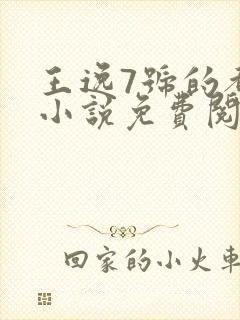 王逸7號的
小說免費閱
回家的小火車